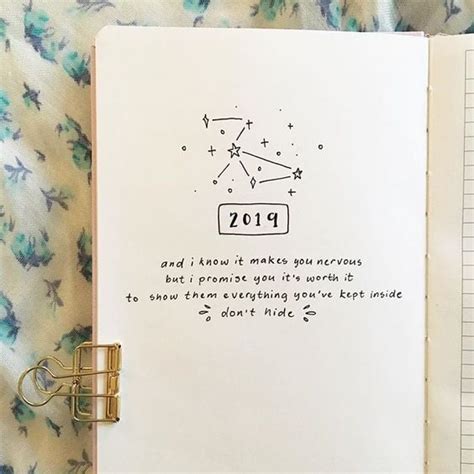 2019
and i know it makes you nervous
but i promise you it's worth it
to show them everything you've kept inside
don't hide